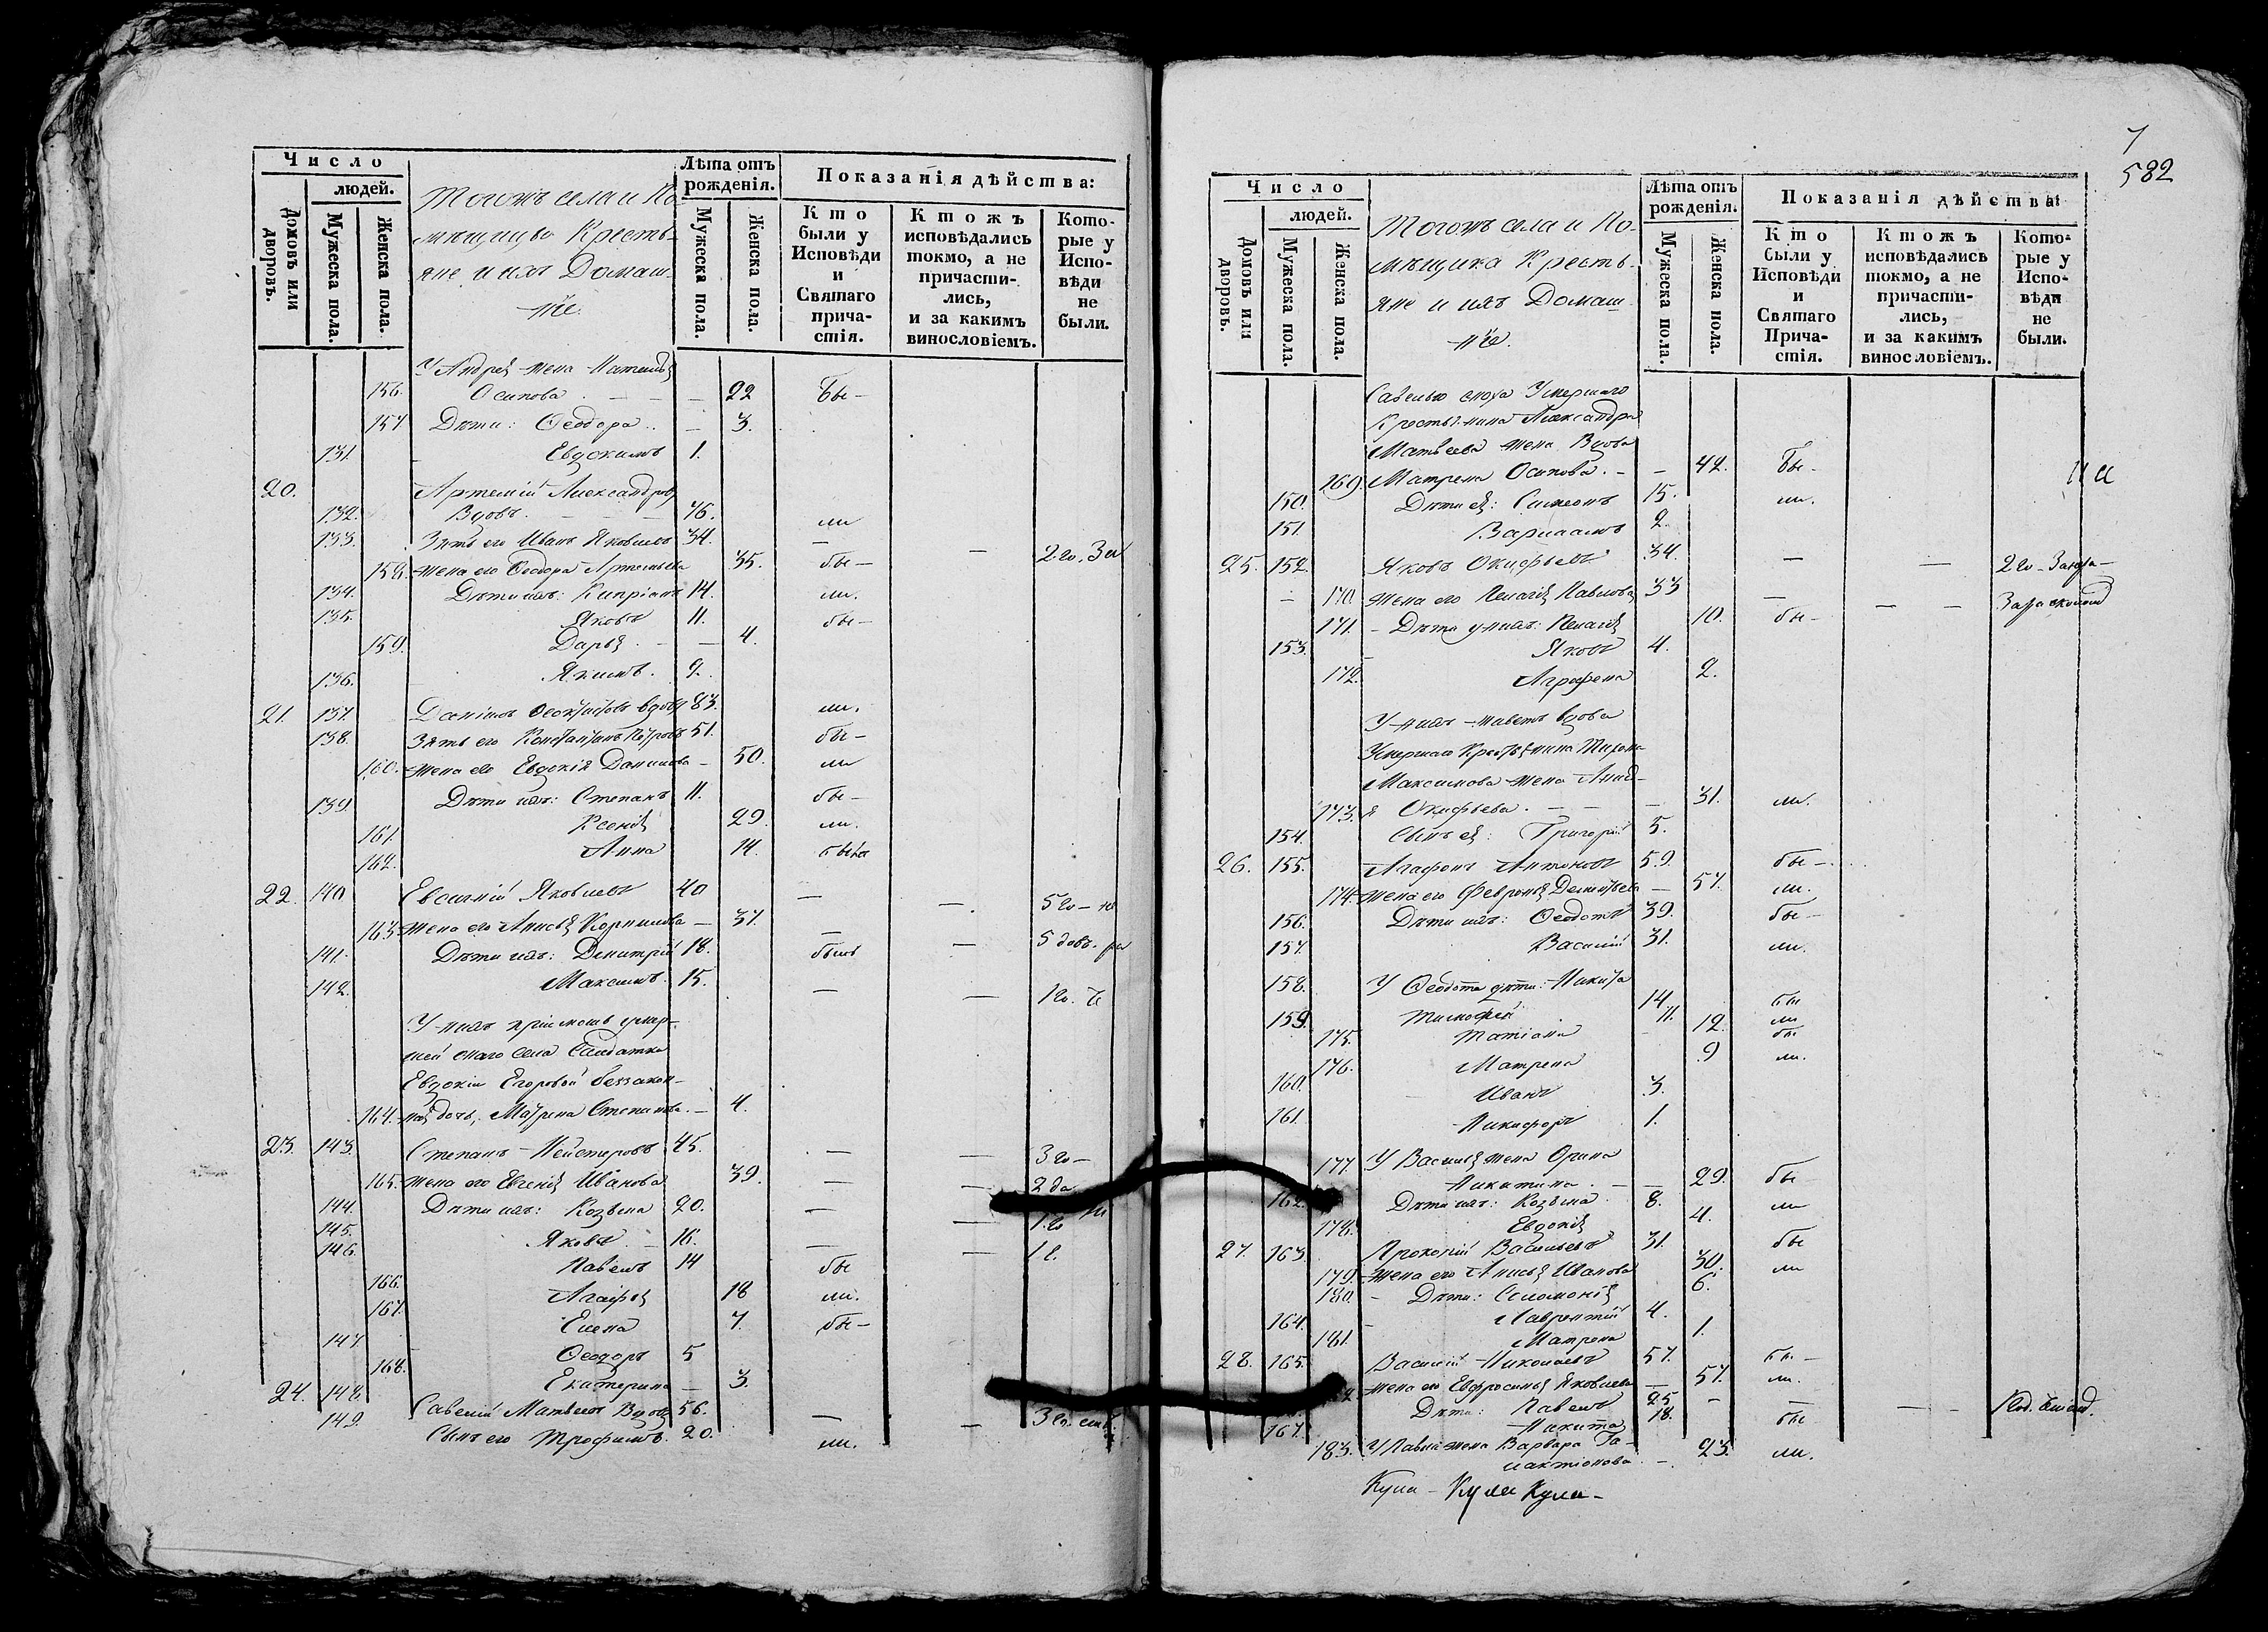 Число
людей.
Домовъ или дворовъ.
Мужеска пола.
Женска пола.
Тогожъ села и По-
мѣщицы Кресть-
яне и ихъ Домаш-
ніе.
Лѣта отъ рожденія.
Мужеска пола.
Женска пола.
Показанія дѣйства:
Кто были у Исповѣди и Святаго причастія.
Ктожъ исповѣдались токмо, а не причастились, и за какимъ винословіемъ.
Которые у Исповѣди не были.
У Андрея жена Наталья
156. Осипова — 22 бы—
157 Дѣти: Ѳеодора — 3.
131. Евдокимъ 1.
20. Артемій Александровъ
132. Вдовъ 76. ли
133. Зять его Иванъ Яковлевъ 34. — — 2 го. За
158. жена его Ѳеодора Артемьева 35. бы—
134. Дѣти ихъ: Кипріанъ 14. ли.
135. Яковъ 11. бы—
159. Дарья — 4.
136. Якимъ. 2.
21. 137. Даніилъ Ѳеоктистовъ вдовъ 83. ли.
138. Зять его Константинъ Петровъ 51. бы—
160. жена его Евдокія Данилова — 50. ли
139. Дѣти ихъ: Степанъ 11. бы—
161. Ксенія 29. ли.
162. Анна 14. была
22. 140 Евсигній Яковлевъ 40 — — 5 го—
163. жена его Анисья Корнилова — 37. — — 5
141. Дѣти ихъ: Димитрій 18. былъ
142. Максимъ. 15. — — 1 го.
У нихъ пріемошъ умер-
шей онаго села Солдатки
Евдокіи Егоровой беззакон-
164. ная дочь, Матрена Степанова. — 4.
23. 143. Степанъ Несторовъ 45. — — 3 го—
165. жена его Евгенія Иванова 39. — — 2 да
144. Дѣти ихъ: Козьма 20. — — 1. го
145. Яковъ — 16. — — 1 г.
146. Павелъ 14 бы
166. Агафья 18 ли.
167. Елена 7. бы—
147. Ѳеодоръ 5
168. Екатерина — 3.
24. 148. Савелій Матвѣевъ Вдовъ 56. — — 3 го.
149. Сынъ его Трофимъ. 20. ли.
7
582
Число
людей.
Домовъ или дворовъ.
Мужеска пола.
Женска пола.
Тогожъ села и По-
мѣщика Кресть-
яне и ихъ Домаш-
ніе.
Лѣта отъ рожденія.
Мужеска пола.
Женска пола.
Показанія дѣйства:
Кто были у Исповѣди и Святаго Причастія.
Ктожъ исповѣдались токмо, а не причастились, и за какимъ винословіемъ.
Которые у Исповѣди не были.
Савелью сноха Умершаго
Крестьянина Александра
Матвеева жена Вдова
169. Матрена Осипова. — — 42. бы—
150. Дѣти ея: Симеонъ 15. ли.
151. Варлаамъ 2.
25. 152. Яковъ Окифьевъ 34. — — 2 го
170. жена его Пелагея Павлова 33 — — —
171. Дѣти у нихъ: Пелагея 10. бы—
153. Яковъ 4.
172. Агрофена 2.
У нихъ живетъ вдова
Умершаго Крестьянина Тихона
Максимова жена
173. Окифьева. — — — 31. ли.
154. Сынъ ея: Григорій 5.
26. 155. Агафонъ Антоновъ 59. бы—
174. жена его Февронья Дементьева — 57. ли.
156. Дѣти ихъ: Ѳеодотъ 39. бы—
157. Василій 31. ли.
158. У Ѳеодота дѣти: Никита 14 бы
159. Тимофей 11. ли
175. Татіана — 12. бы
176. Матрена 9 ли.
160. Иванъ 3.
161. Никифоръ 1.
177. У Василья жена Орина
Никитина. — — 29. бы
162. Дѣти ихъ: Козьма 8. ли
178. Евдокія 4.
27. 163. Прокопій Васильевъ 31. бы
179. жена его Анисья Иванова 30. ли
180. Дѣти: Соломонія 6.
164. Лаврентій 4.
181. Матрена 1.
28. 165. Василій Николаевъ 57. бы—
жена его Евфросинья Яковлева — 57. ли.
Дѣти: Павелъ 25 — — —
167. Никита 18. бы
183. У Павла жена Варвара Га-
лактіонова. — 23. ли.